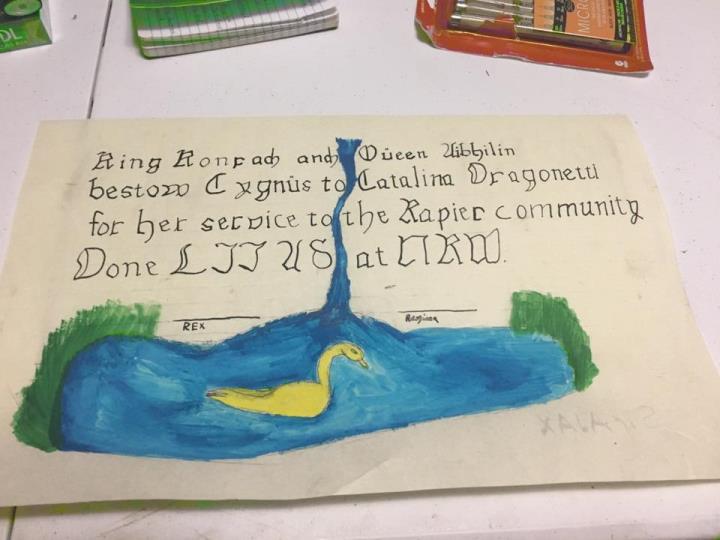 DL
MICRO
King Konrad and Queen Aibhilin
bestow Cygnus to Catalina Dragonetti
for her service to the Rapier community
Done LII AS at NRW.
REX
Regina